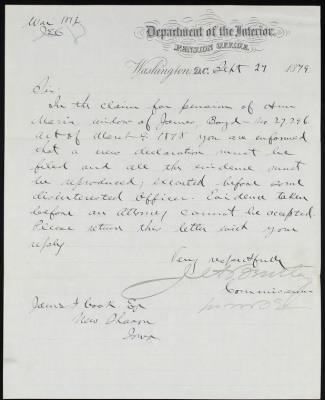 War 1812
Department of the Interior,
PENSION OFFICE,
Washington, D.C. Sept 27 1879
Sir:
In the claim for pension of Ann
Maria, widow of James Boyd - No. 27,296
Act of March 9, 1878 you are informed
that a new declaration must be
filed and all the evidence must
be reproduced; executed before some
disinterested Officer. Evidence taken
before an Attorney cannot be accepted.
Please return this letter with your
reply
Very respectfully
J. A. Bentley
Commissioner
James F Cook Esq
New Sharon
Iowa